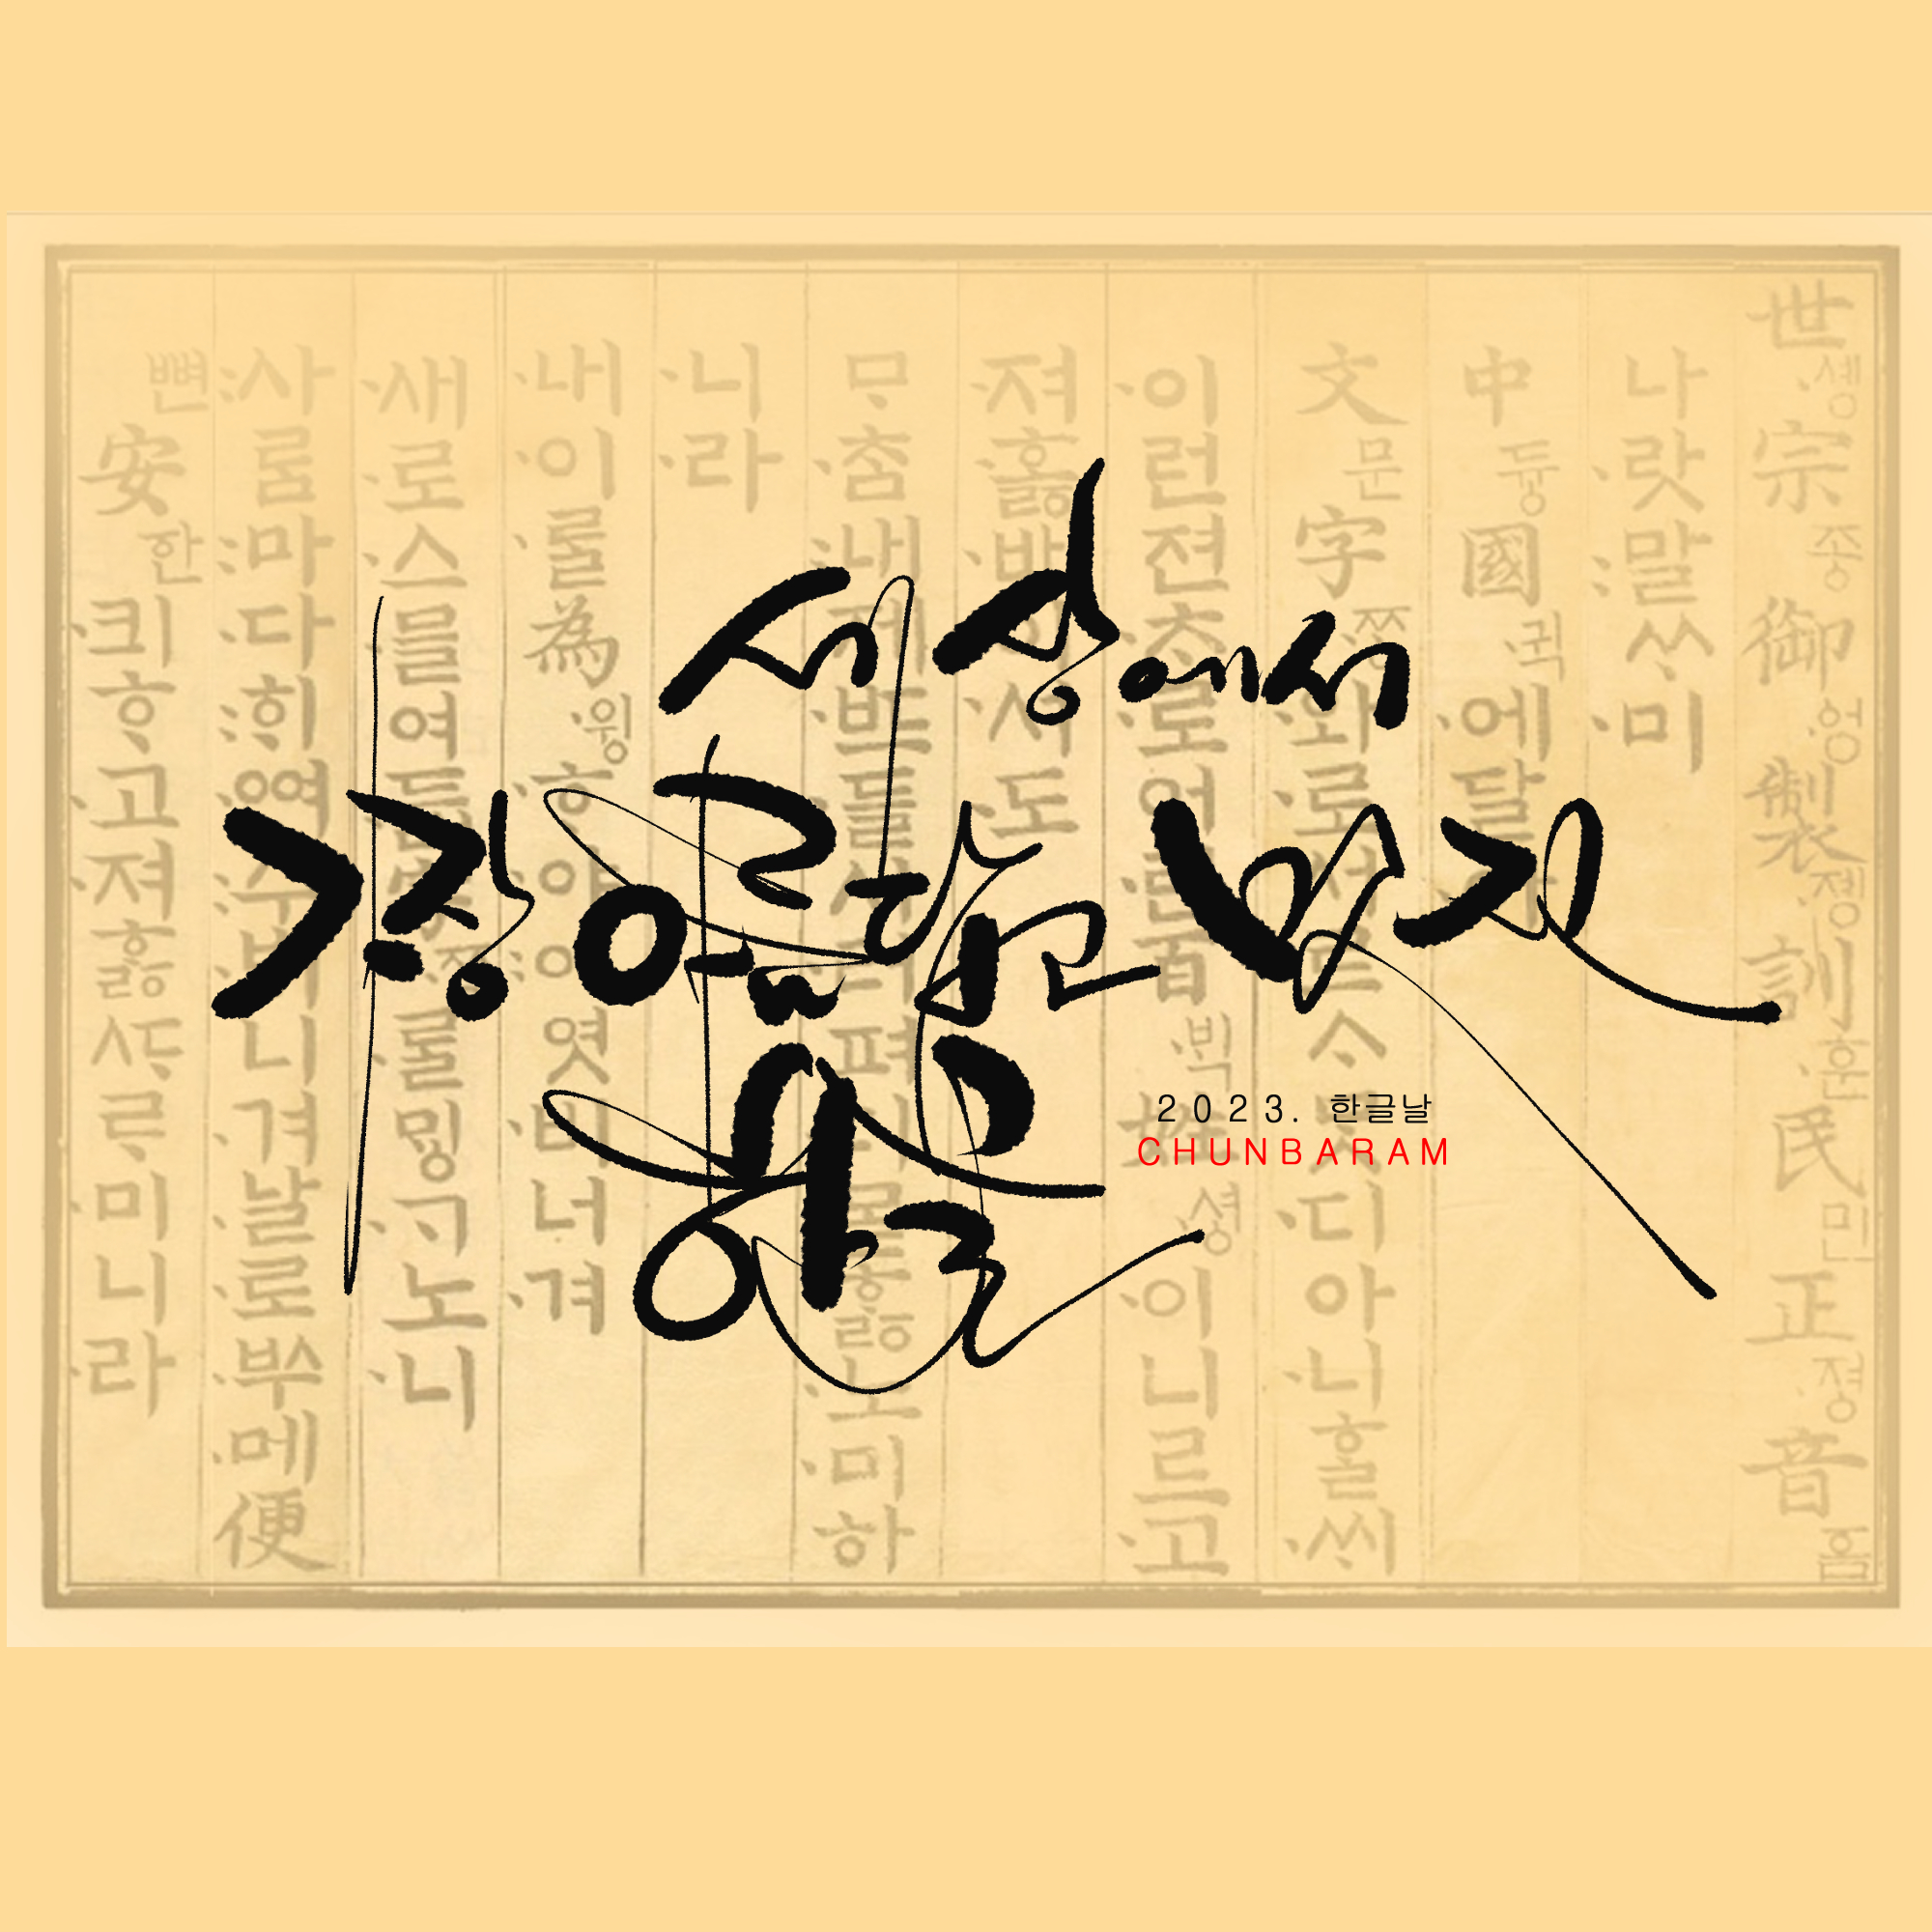 세상에서
가장 아름답고 멋진
한글
2023. 한글날
CHUNBARAM
世솅宗종御엉製졩訓훈民민正졍音흠
나랏말ᄊᆞ미
中듕國귁에달아
文문字ᄍᆞᆼ와로서르ᄉᆞᄆᆞᆺ디아니ᄒᆞᆯᄊᆡ
이런젼ᄎᆞ로어린百ᄇᆡᆨ姓셩이니르고
져호ᇙ배이셔도
ᄆᆞᄎᆞᆷ내제ᄠᅳ들시러펴디몯ᄒᆞᇙ노미하
니라
내이ᄅᆞᆯ為윙ᄒᆞ야어엿비너겨
새로스믈여듧字ᄍᆞᆼᄅᆞᆯᄆᆡᇰᄀᆞ노니
사ᄅᆞᆷ마다ᄒᆡᅇᅧ수ᄫᅵ니겨날로ᄡᅮ메便
뼌安한킈ᄒᆞ고져ᄒᆞᇙᄯᆞᄅᆞ미니라